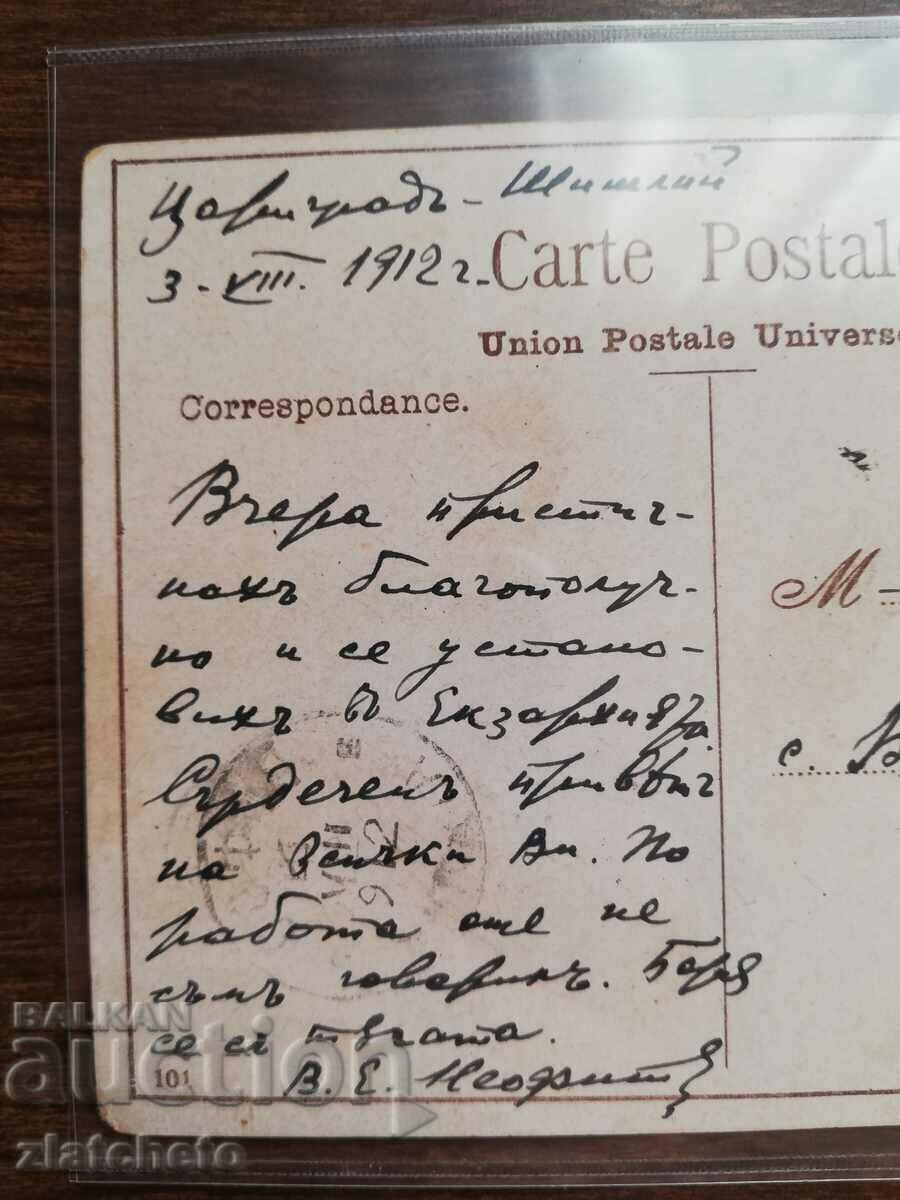 Цариградъ - Шишлий
3 - VIII. 1912 г.
Carte Postale
Union Postale Universe
Correspondance.
Вчера пристиг-
нахъ благополуч-
но и се устано-
вихъ въ Екзархията.
Сърдеченъ привѣт
на всички Ви. По
работа още не
съмъ говорилъ. Боря
се съ тѫгата.
В. Е. Неофит
М -
с. В
101
BALKAN
auction
zlatcheto